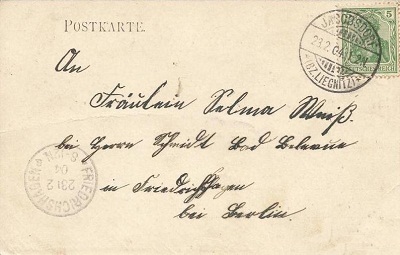 POSTKARTE.
5
23.2.04
*(BZ.LIEGNITZ)*
An
Fräulein Selma Weiß.
bei Herrn Schmidt Bad Bellevue
in Friedrichshagen
bei Berlin.
* FRIEDRICHSHAGEN *
23 2
04